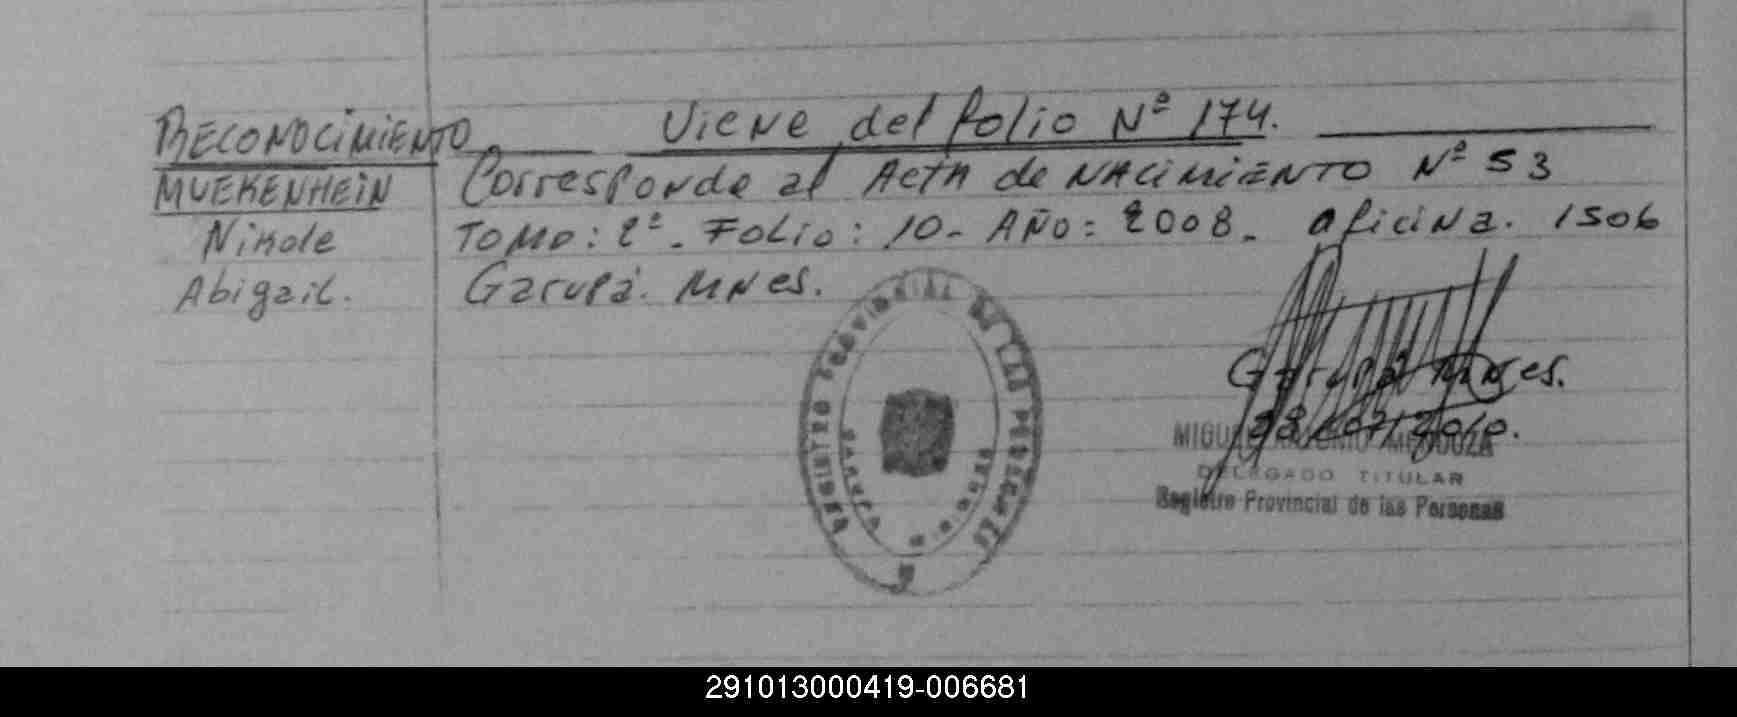 RECONOCIMIENTO
MUEKENHEIN
Nikole
Abigail.
Viene del folio Nº 174.
Corresponde al Acta de NACIMIENTO Nº 53
TOMO: 2º. FOLIO: 10- AÑO: 2008. oficina. 1506
Garupá. MNES.
REGISTRO PROVINCIAL DE LAS PERSONAS
Garupá MNES.
23/07/2010.
MIGUEL ANTONIO MENDOZA
DELEGADO TITULAR
Registro Provincial de las Personas
291013000419-006681